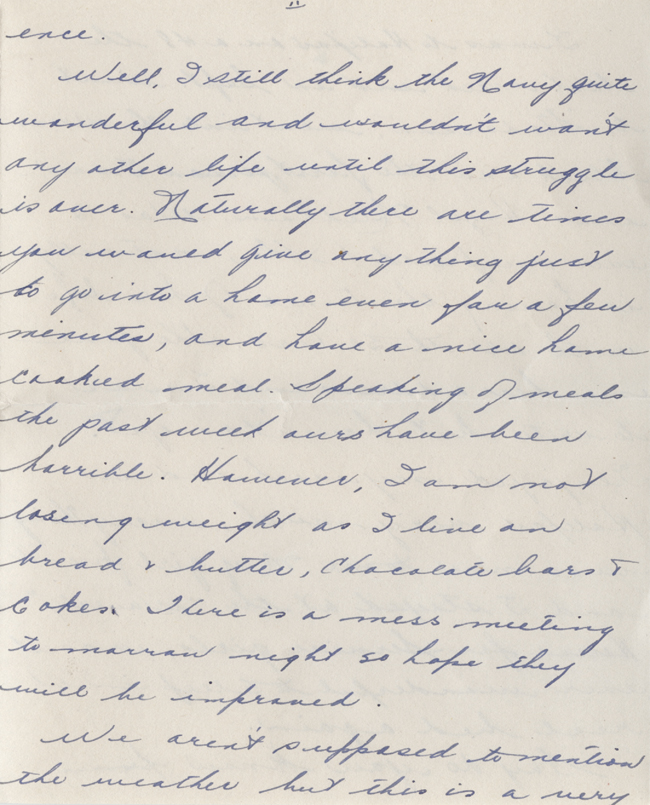 "
ence.
Well, I still think the Navy quite
wonderful and wouldn't want
any other life until this struggle
is over. Naturally there are times
you would give any thing just
to go into a home even for a few
minutes, and have a nice home
cooked meal. Speaking of meals
the past week ours have been
horrible. However, I am not
losing weight as I live on
bread & butter, Chocolate bars &
Cokes. There is a mess meeting
to morrow night so hope they
will be improved.
We aren't supposed to mention
the weather but this is a very